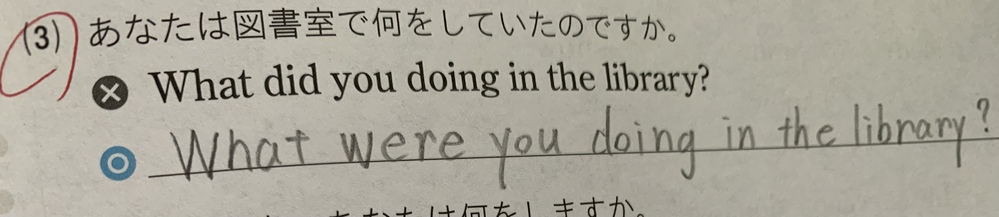 (3) あなたは図書室で何をしていたのですか。
What did you doing in the library?
What were you doing in the library?
あなたは何をしますか。